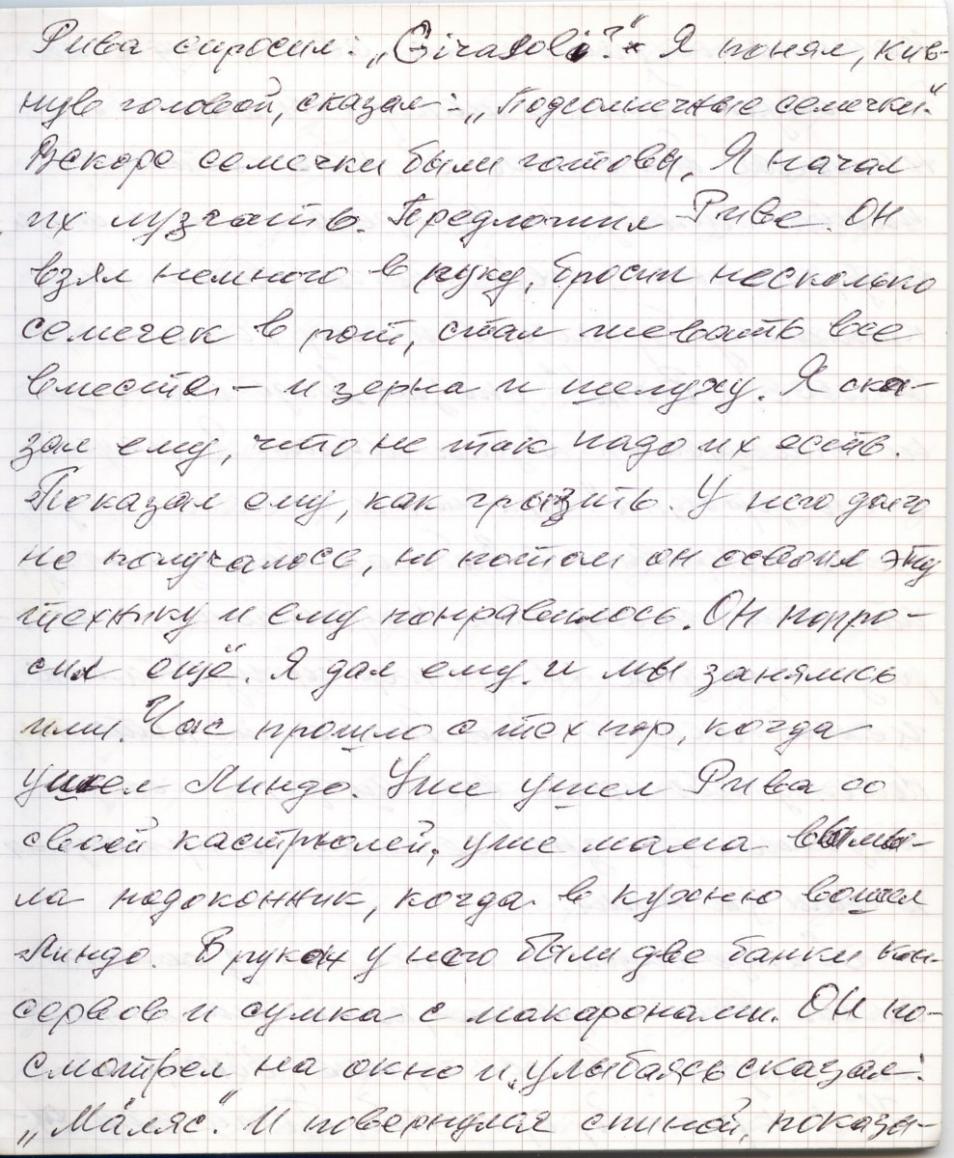 Рива спросил: „Girasoli?"* Я понял, кив-
нув головой, сказал: „Подсолнечные семечки."
Вскоре семечки были готовы. Я начал
их лузгать. Предложил Риве. Он
взял немного в руку, бросил несколько
семечек в рот, стал жевать все
вместе – и зерна и шелуху. Я ска-
зал ему, что не так надо их есть.
Показал ему, как грызть. У него долго
не получалось, но потом он освоил эту
технику и ему понравилось. Он попро-
сил ещё. Я дал ему и мы занялись
ими. Час прошло с тех пор, когда
ушел Линдо. Уже ушел Рива со
своей кастрюлей, уже мама вымы-
ла подоконник, когда в кухню вошел
Линдо. В руках у него были две банки кон-
сервов и сумка с макаронами. Он по-
смотрел на окно и, улыбаясь сказал:
„Маляс." И повернулся спиной, показа-